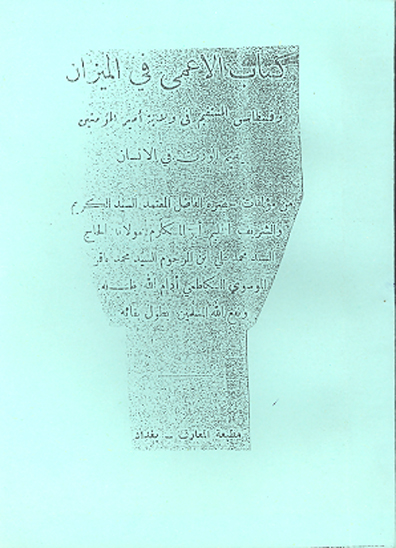 كتاب الاعمى في الميزان
المستقيم في ولاية أمير المؤمنين
الوزن في الانسان
من مؤلفات حضرة الفاضل المعتمد السيد الكريم
والشريف مولانا الحاج
السيد محمد علي ابن المرحوم السيد محمد باقر
الموسوي الكاظمي أدام الله ظله
ونفع الله المسلمين بطول بقائه
مطبعة المعارف - بغداد